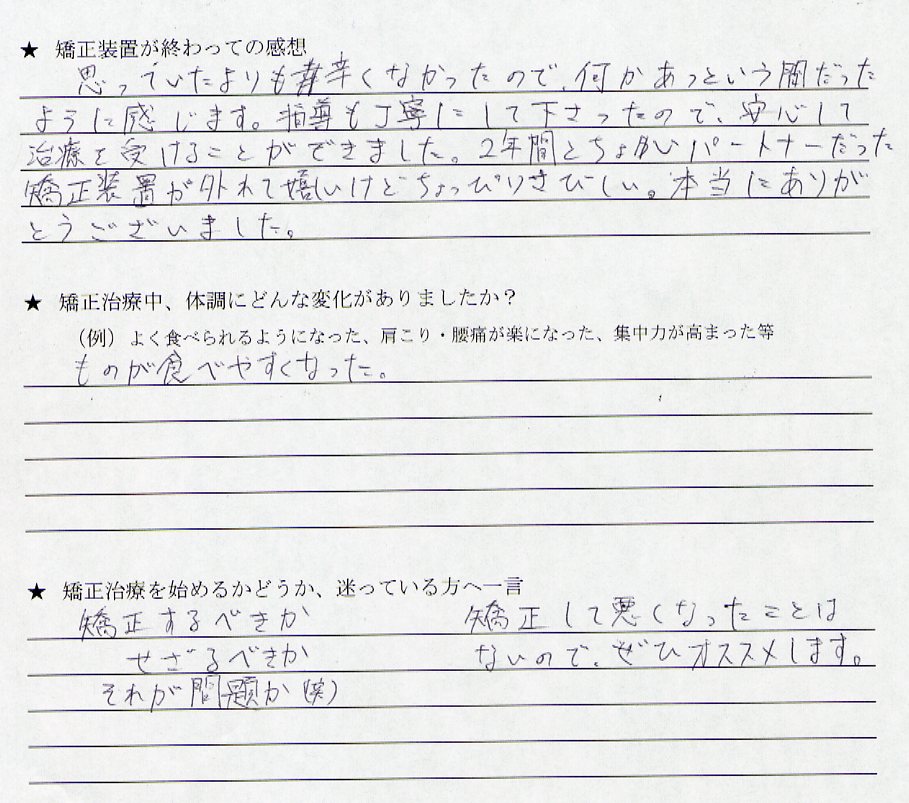 ★ 矯正装置が終わっての感想
思っていたよりも辛くなかったので、何かあっという間だった
ように感じます。指導も丁寧にして下さったので、安心して
治療を受けることができました。2年間とちょいパートナーだった
矯正装置が外れて嬉しいけどちょっぴりさびしい。本当にありが
とうございました。
★ 矯正治療中、体調にどんな変化がありましたか？
（例）よく食べられるようになった、肩こり・腰痛が楽になった、集中力が高まった等
ものが食べやすくなった。
★ 矯正治療を始めるかどうか、迷っている方へ一言
矯正するべきか
せざるべきか
それが問題か（笑）
矯正して悪くなったことは
ないので、ぜひオススメします。